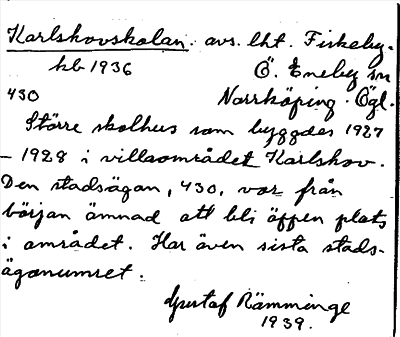 Karlshovskolan. avs. lht. Fiskeby-
kb 1936 Ö. Eneby sn
430 Norrköping. Ögl.
Större skolhus som byggdes 1927
- 1928 i villaområdet Karlshov.
Den stadsägan, 430, var från
början ämnad att bli öppen plats
i området. Har även sista stads-
ägonumret.
Gustaf Rämminge
1939.